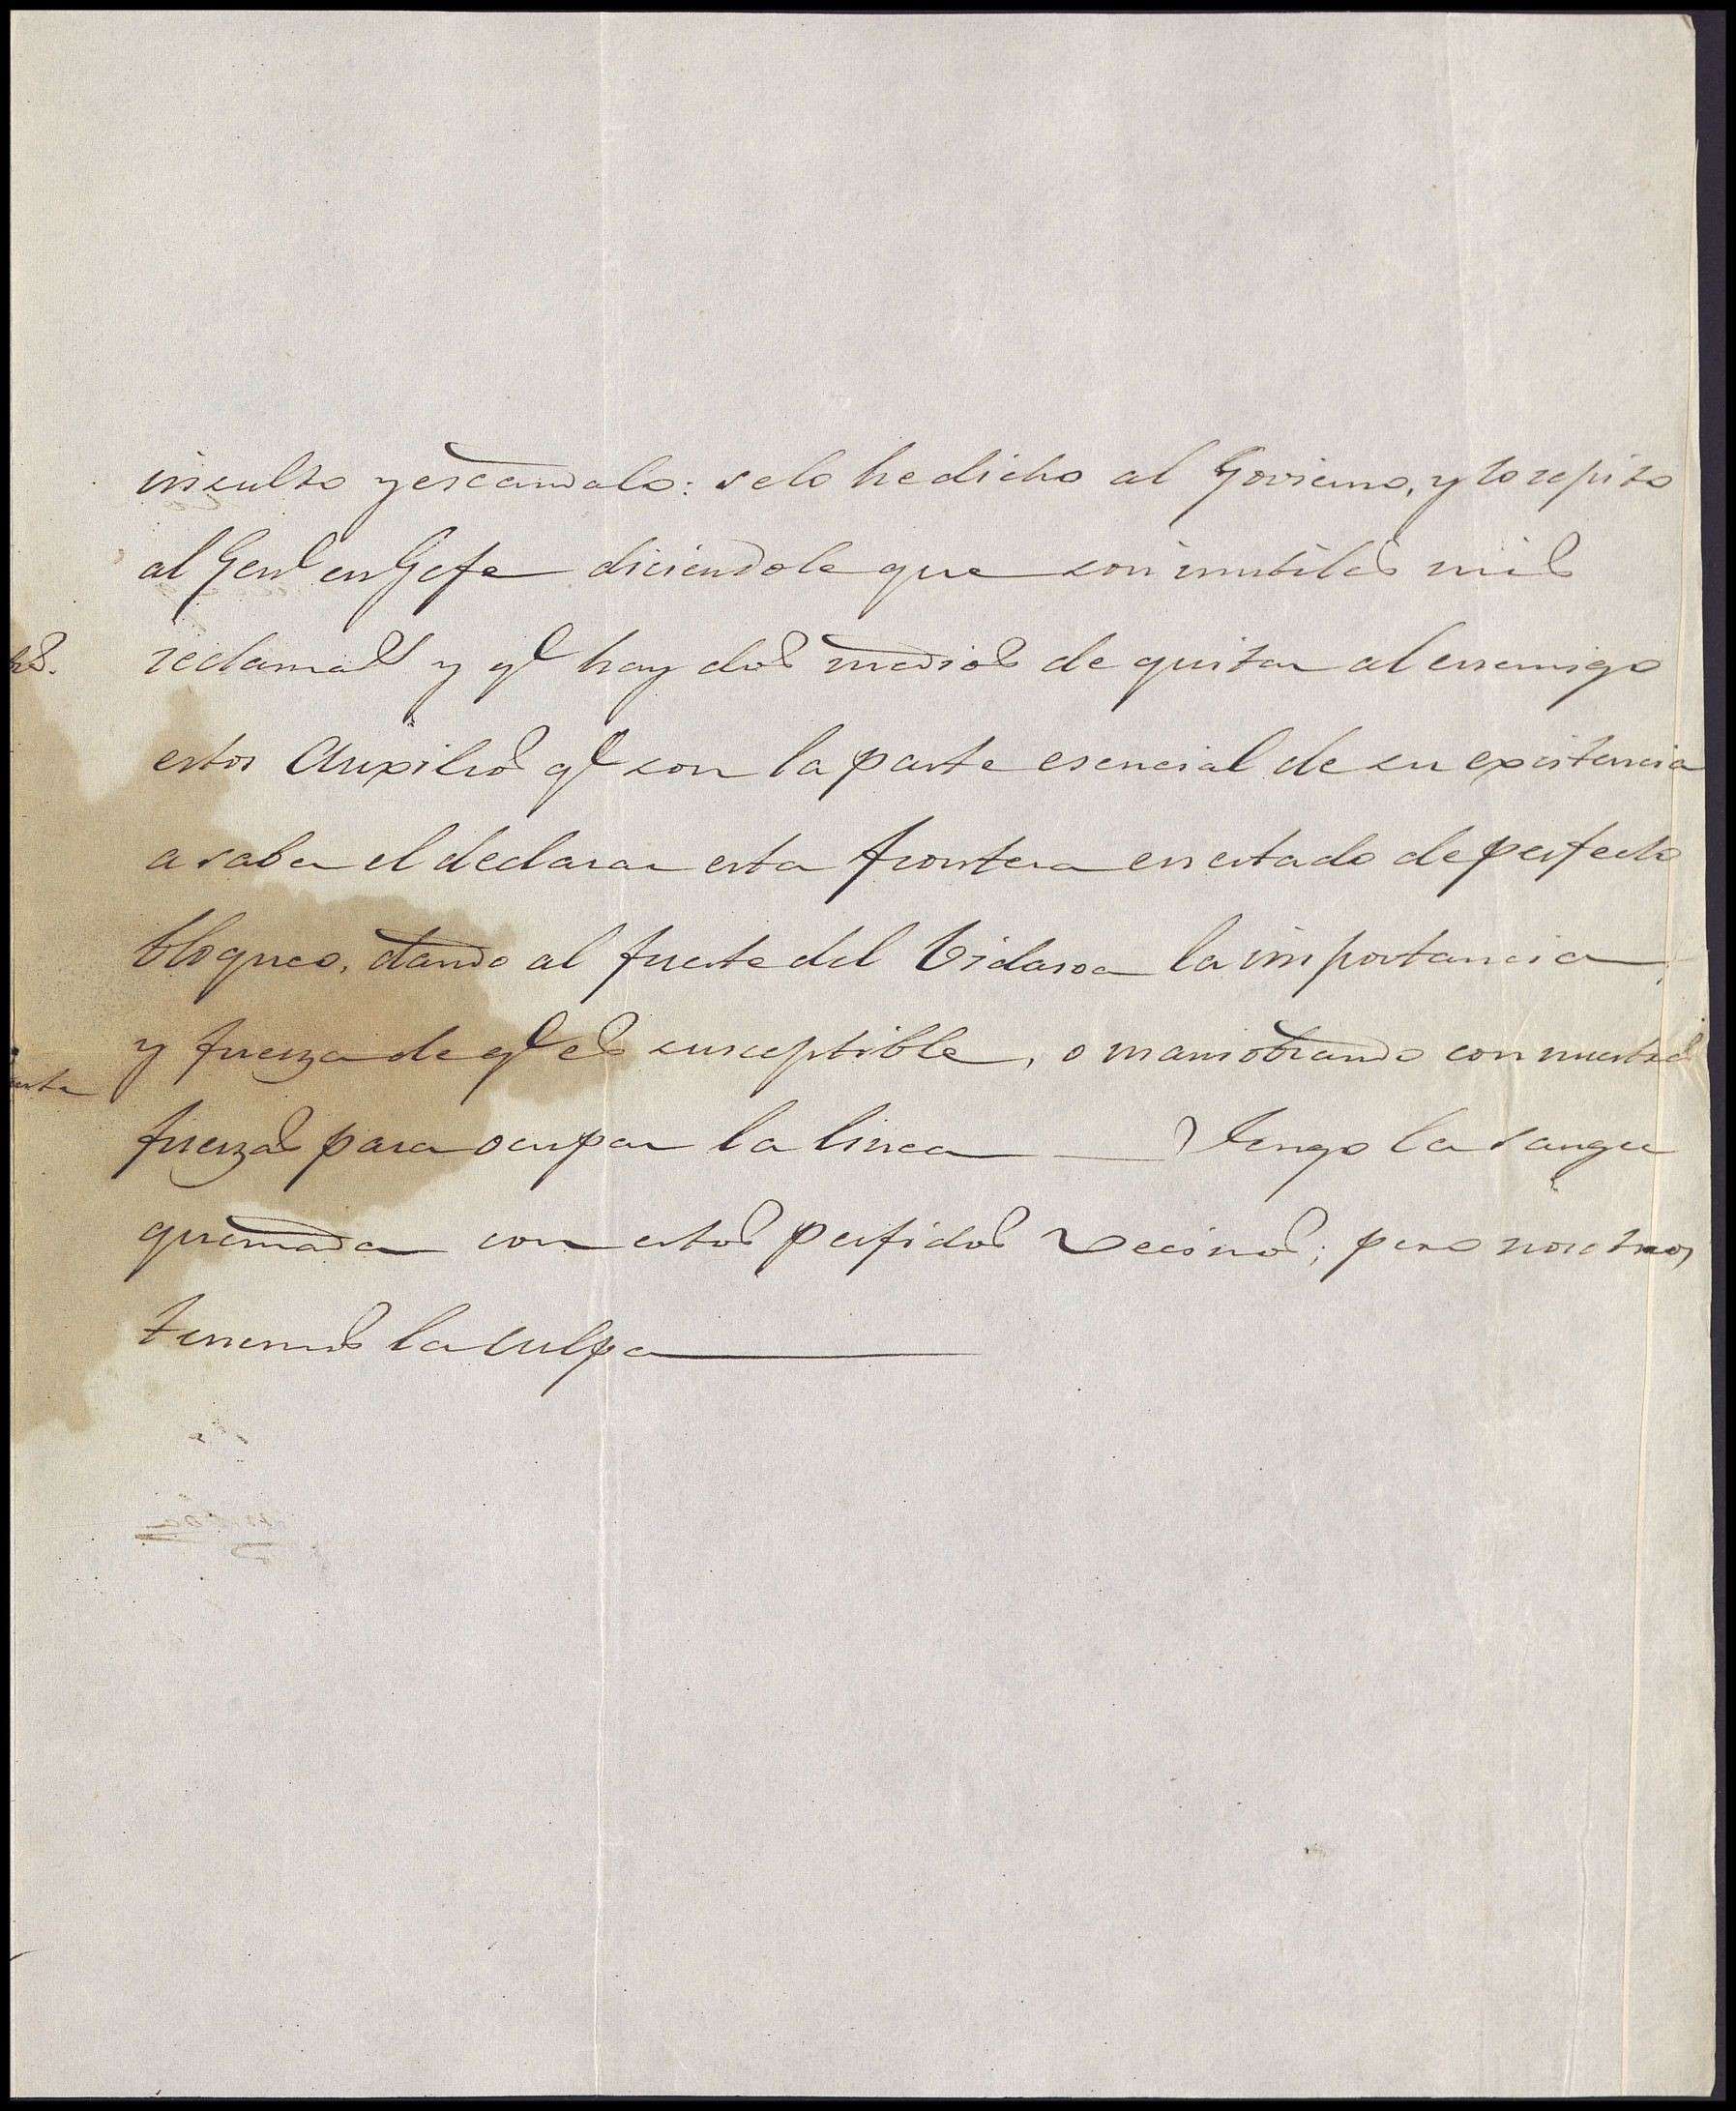 insulto y escandalo: se lo he dicho al Govierno, y lo repito
al Genl en Gefe diciendole que son inutiles mis
reclamas y qe hay dos medios de quitar al enemigo
estos Auxilios qe son la parte esencial de su existencia
a saber el declarar esta frontera en estado de perfecto
bloqueo, dando al fuerte del Vidasoa la importancia,
y fuerza de qe es susceptible, o maniobrando con nuestras
fuerzas para ocupar la linea — Tengo la sangre
quemada con estos perfidos vecinos; pero nosotros
tenemos la culpa